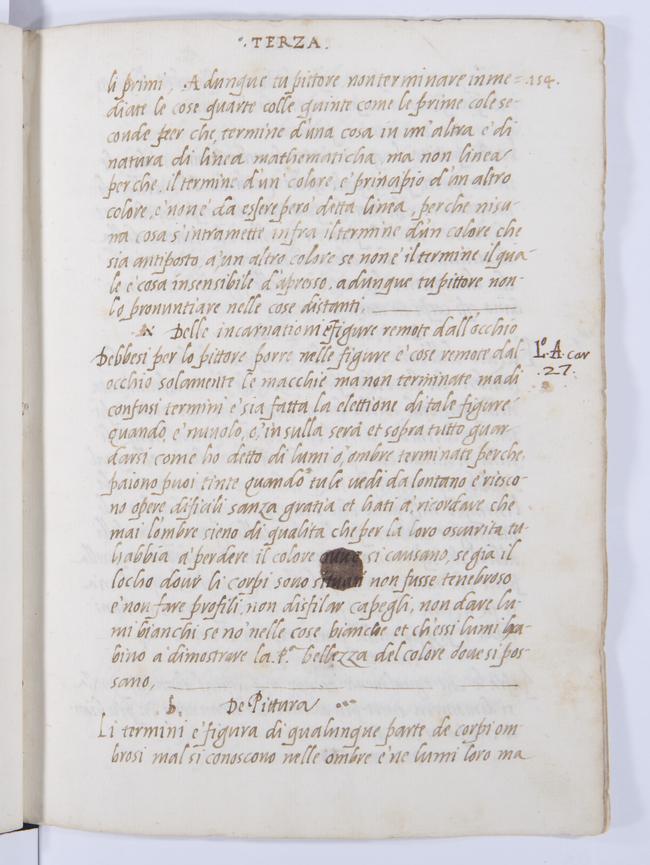 ·. TERZA.
li primi, Adunque tu pittore non terminare in me= 154.
diate le cose quarte colle quinte come le prime cole se-
conde per che, termine d'una cosa in un'altra e' di
natura di linea mathematicha, ma non linea
perche, il termine d'un colore, e' principio d'un altro
colore, e' non e' da essere pero' detta linea, perche nisu-
na cosa s'intramette infra il termine d'un colore che
sia antiposto, a' un altro colore se non e' il termine il qua-
le e' cosa insensibile d'apresso. adunque tu pittore non-
lo pronuntiare nelle cose distanti.
Delle incarnationi e figure remote dall'occhio
Debbesi per lo pittore porre nelle figure e' cose remote dal
Lº. A. car
.27.
occhio solamente le macchie ma non terminate ma di
confusi termini e' sia fatta la elettione di tale figure
quando, e' nuvolo, o', in sulla sera et sopra tutto guar
darsi come ho detto di lumi o, ombre terminate perche,
paiono puoi tinte quando tu le vedi da lontano e' riesco-
no opere dificili sanza gratia et hati a' ricordare che
mai l'ombre sieno di qualita che per la loro oscurita tu-
habbia a' perdere il colore ove si causano, se gia il
locho dove li corpi sono situati non fusse tenebroso
e' non fare profili, non disfilar capegli, non dare lu-
mi bianchi se no' nelle cose bianche et ch'essi lumi ha-
bino a' dimostrare la p.ª bellezza del colore dove si pos-
sano,
b. De Pittura
Li termini e' figura di qualunque parte de corpi om-
brosi mal si conoscono nelle ombre e' ne lumi loro ma